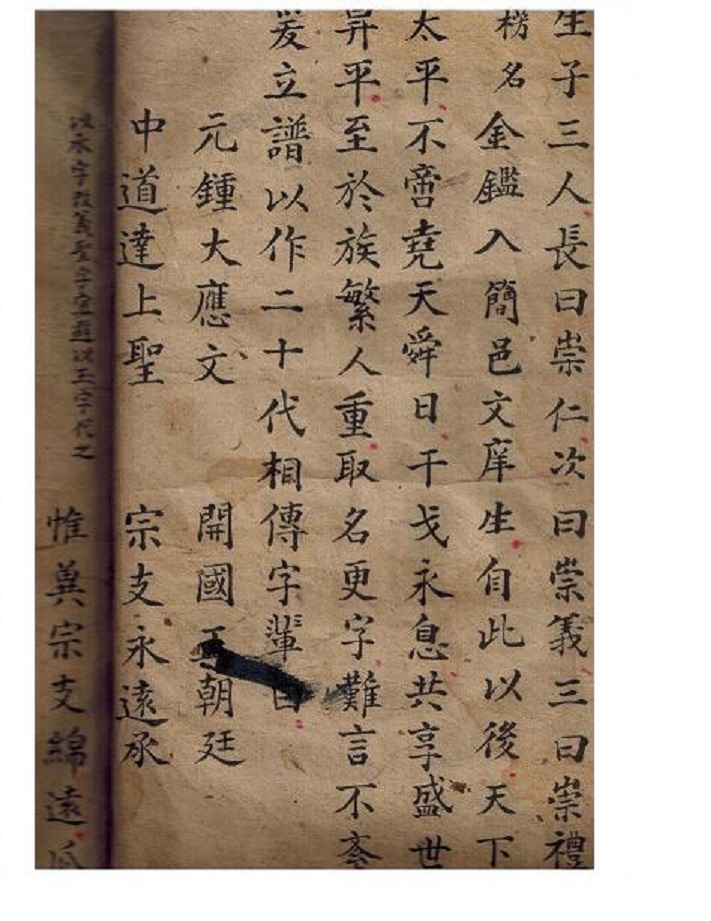 生子三人長曰崇仁次曰崇義三曰崇禮
榜名金鑑入簡邑文庠生自此以後天下
太平不啻堯天舜日干戈永息共享盛世
昇平至於族繁人重取名更字難言不紊
爰立譜以作二十代相傳字輩曰
元鍾大應文 開國朝廷
中道達上聖 宗支永遠承
以永字改義聖字以玉字代之
惟冀宗支綿遠瓜